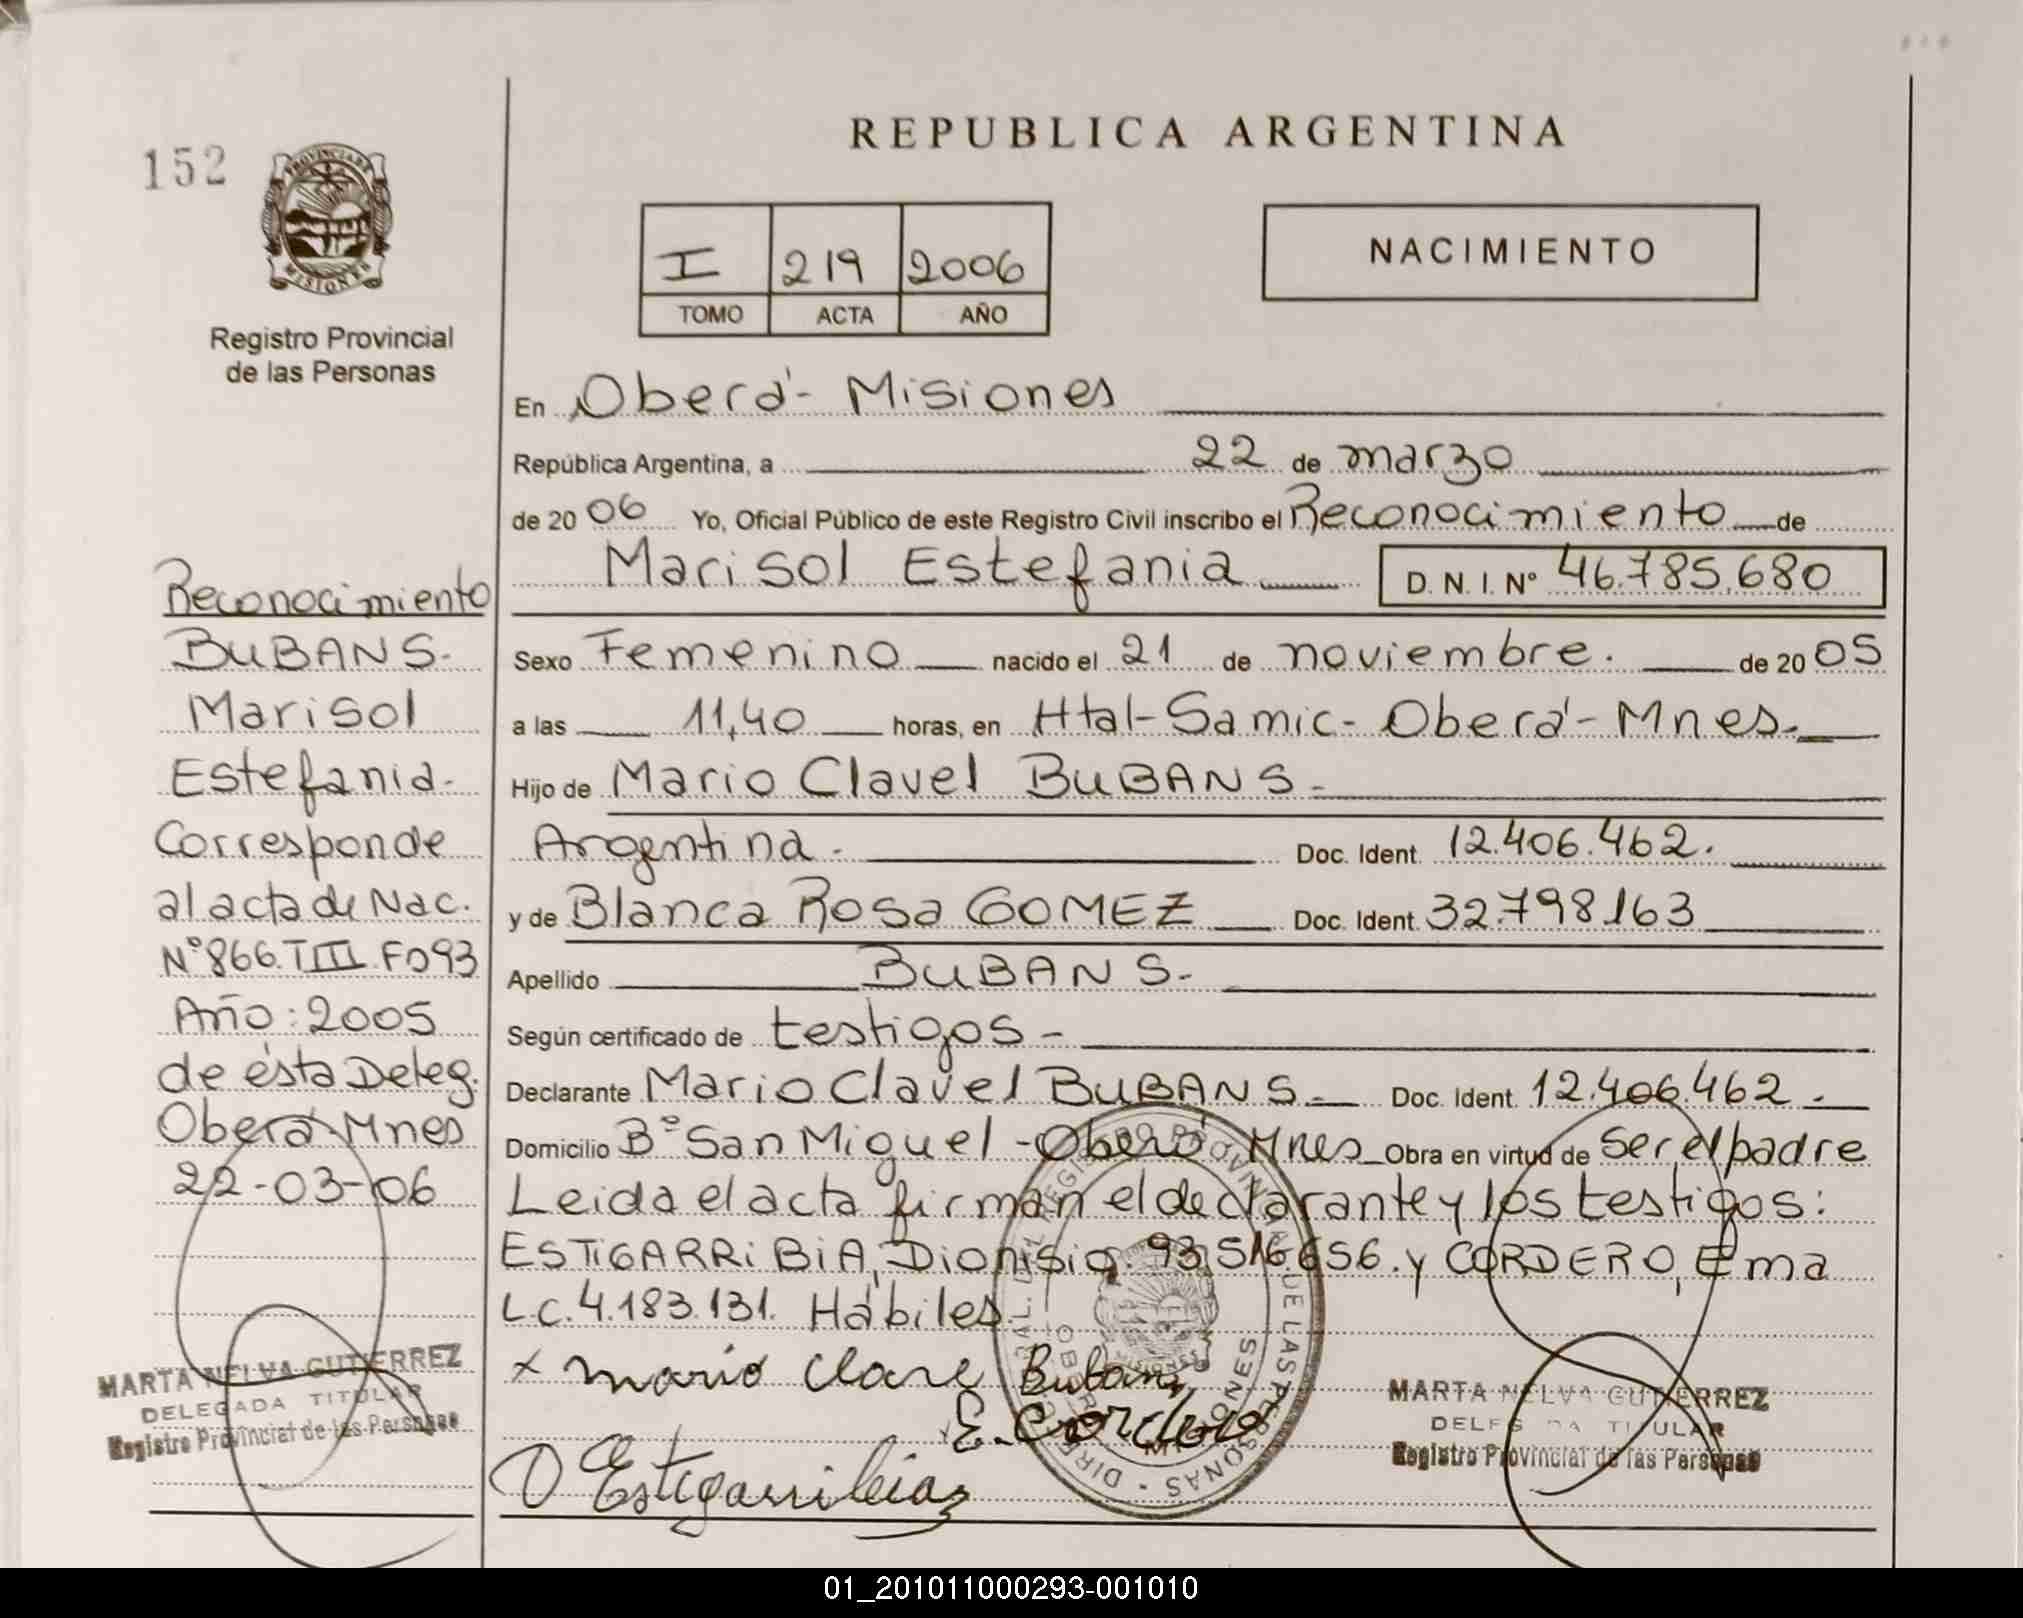 152
PROVINCIA DE
MISIONES
Registro Provincial
de las Personas
REPUBLICA ARGENTINA
I 219 2006
TOMO ACTA AÑO
NACIMIENTO
En Oberá - Misiones
República Argentina, a 22 de marzo
de 20 06 Yo, Oficial Público de este Registro Civil inscribo el Reconocimiento de
Marisol Estefania D. N. I. Nº 46.785.680
Sexo Femenino nacido el 21 de noviembre. de 20 05
a las 11,40 horas, en Htal-Samic-Oberá-Mnes.
Hijo de Mario Clavel BUBANS.
Argentina. Doc. Ident. 12.406.462.
y de Blanca Rosa GOMEZ Doc. Ident. 32.798.163
Apellido BUBANS.
Según certificado de testigos
Declarante Mario Clavel BUBANS. Doc. Ident. 12.406.462.
Domicilio Bº San Miguel - Oberá Mnes Obra en virtud de ser el padre
Leida el acta firman el declarante y los testigos:
ESTIGARRIBIA, Dionisio. 93.516.656. y CORDERO, Ema
LC. 4.183.131. Hábiles.
x mario Clare Bubans
E. Cordero
D Estigarribia
MARTA NELVA GUTIERREZ
DELEGADA TITULAR
Registro Provincial de las Personas
Reconocimiento
BUBANS.
Marisol
Estefania.
Corresponde
al acta de Nac.
Nº 866.TIII.Fº93
Año: 2005
de ésta Deleg.
Oberá Mnes
22-03-06
MARTA NELVA GUTIERREZ
DELEGADA TITULAR
Registro Provincial de las Personas
01_201011000293-001010